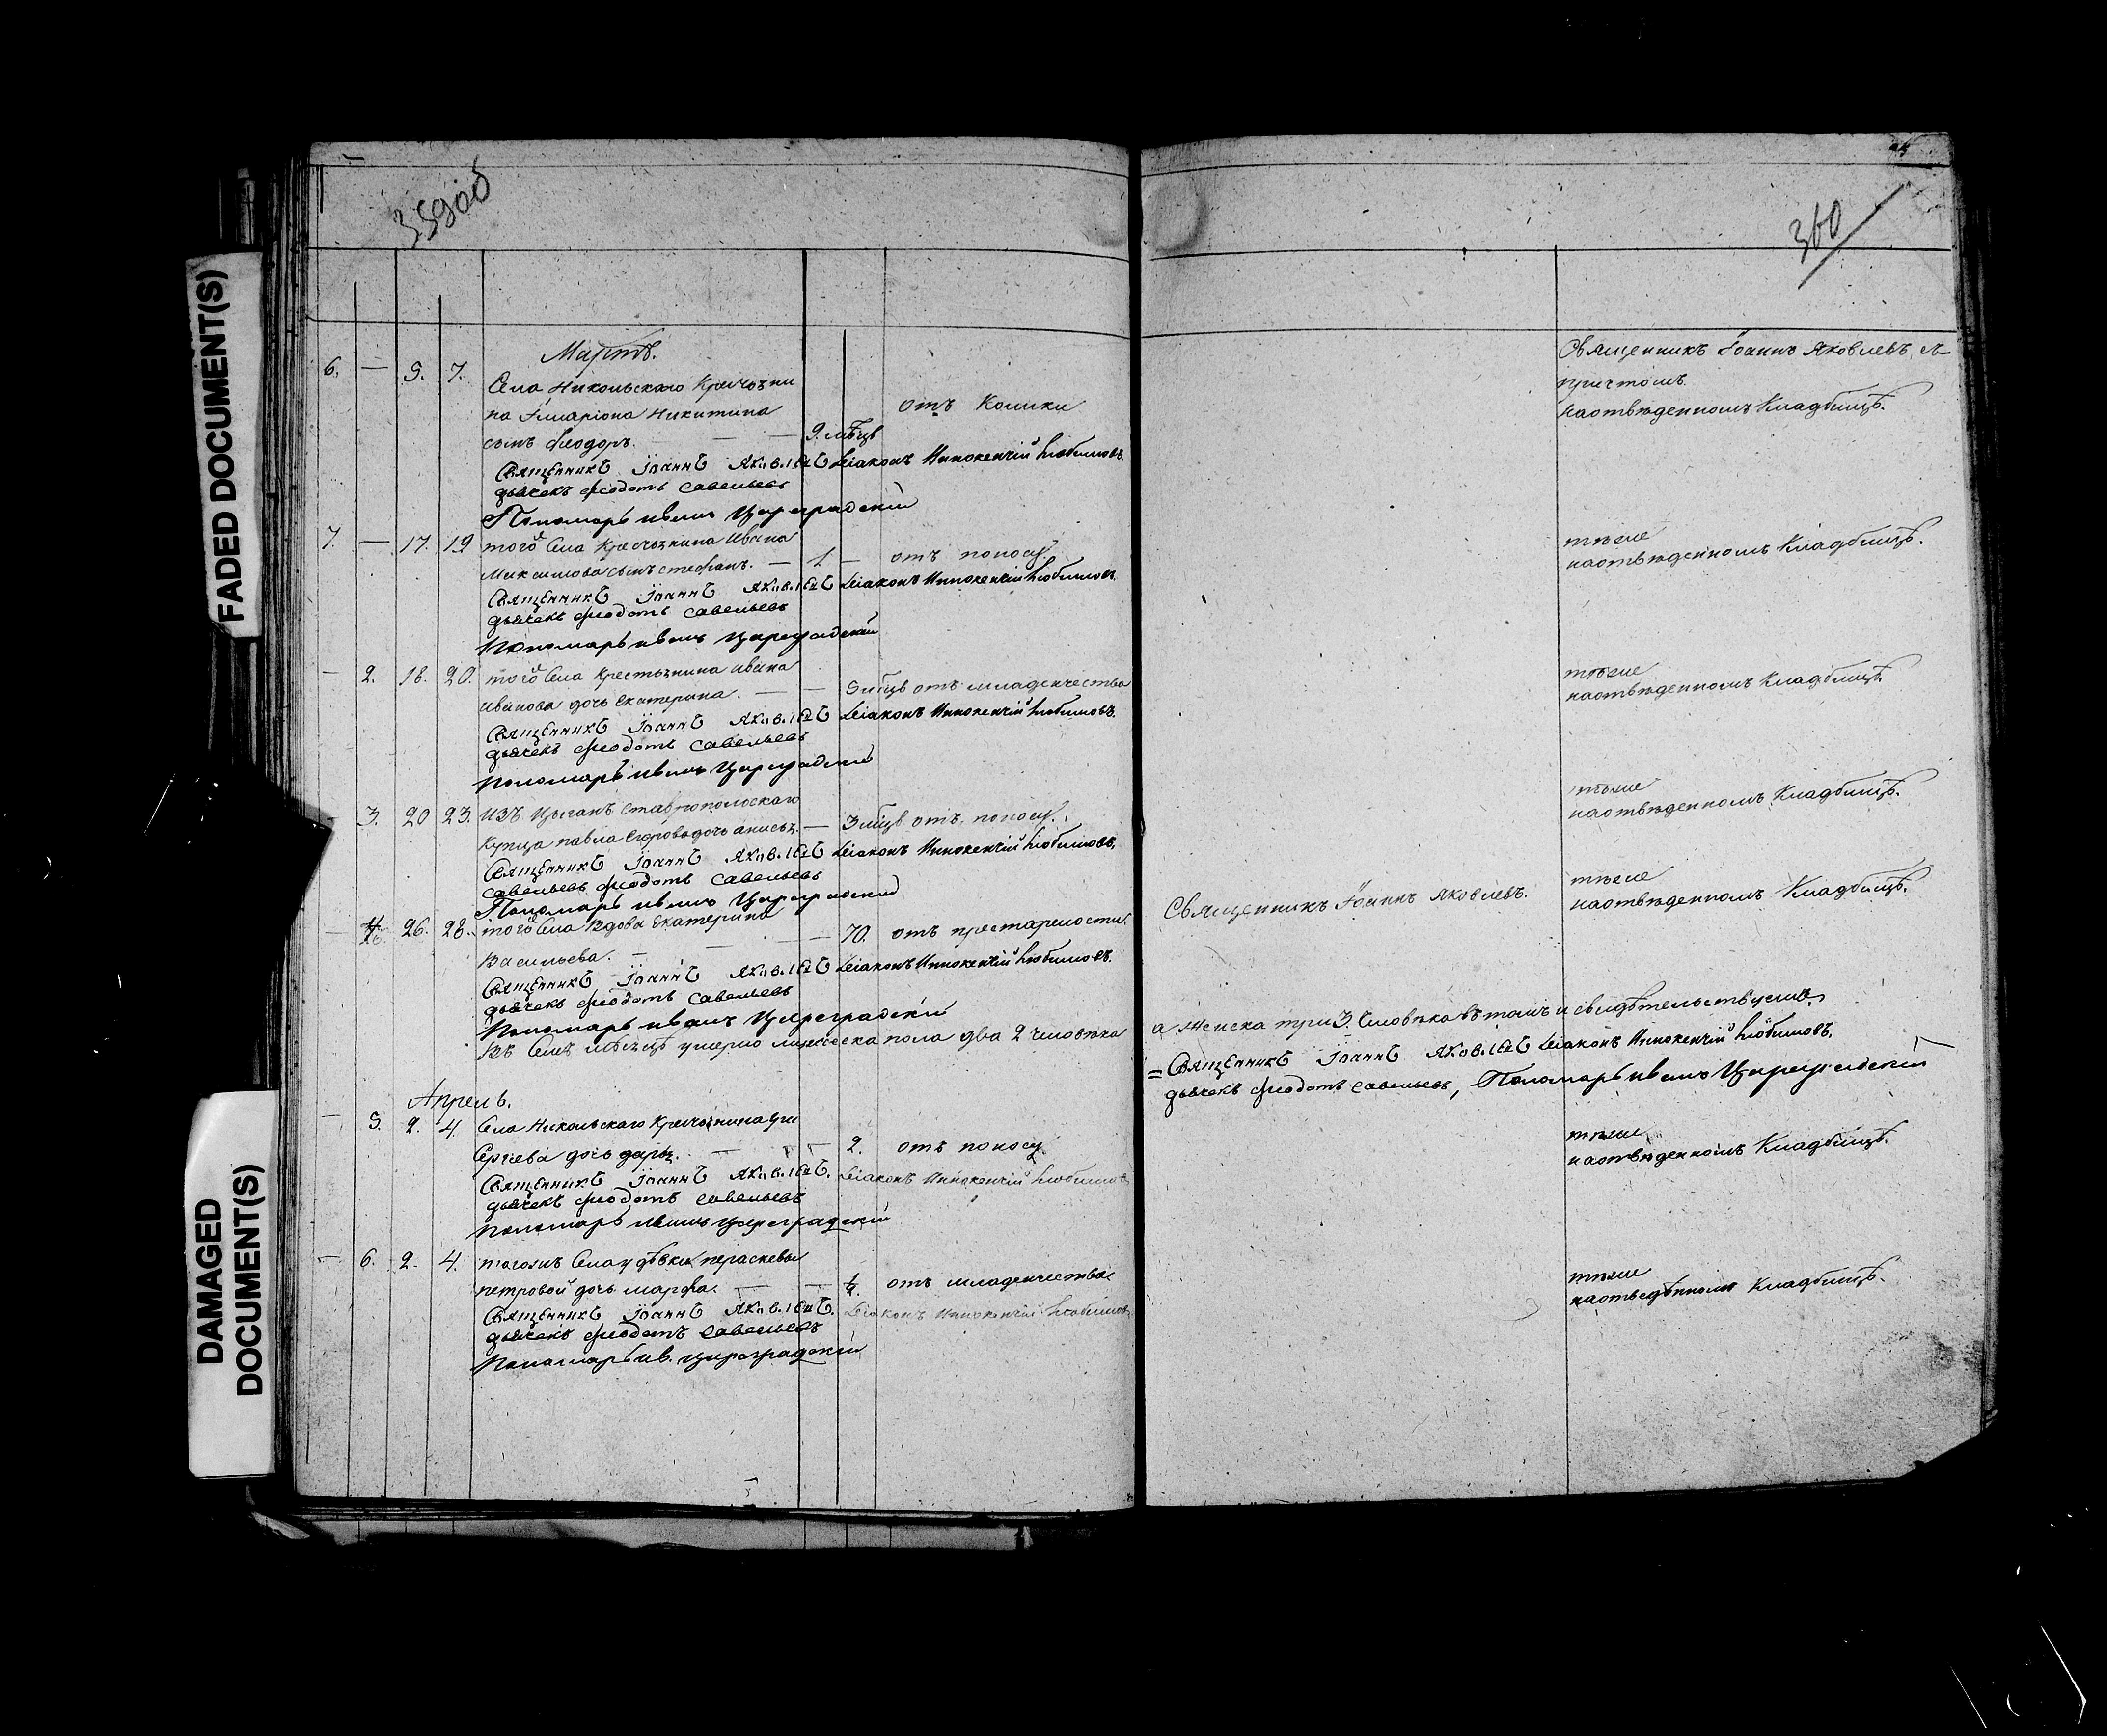 359об
360
FADED DOCUMENT(S)
DAMAGED
DOCUMENT(S)
Мартъ.
6. — 5. 7.
Села Никольскаго Крестьяни
на Илларіона Никитина
сынъ Феодоръ. — — 9. мѣцв
отъ Колики
Священникъ Іоаннъ Яковлевъ съ
причтомъ
наотвѣденномъ Кладбищѣ.
Священникъ Іоаннъ Яковлевъ Діаконъ Иннокентій Любимовъ.
дьячекъ Феодотъ Савельевъ
Пономарь иванъ Цареградскій
7. — 17. 19 того Села Крестьянина Ивана
Максимова сынъ стефанъ. — 1 — отъ поносу.
тѣже
наотвѣденномъ Кладбищѣ.
Священникъ Іоаннъ Яковлевъ Діаконъ Иннокентій Любимовъ.
дьячекъ Феодотъ Савельевъ
Пономарь иванъ Цареградскій
— 2. 18. 20. того Села Крестьянина Ивана
Иванова дочь Екатерина. — — 5 мцв отъ младенчества
тѣже
наотвѣденномъ Кладбищѣ.
Священникъ Іоаннъ Яковлевъ Діаконъ Иннокентій Любимовъ.
дьячекъ Феодотъ Савельевъ
Пономарь иванъ Цареградскій
3. 20 23. Изъ Цыганъ Ставропольскаго
Купца павла дочь анисья. — 3 мцв отъ поносу.
тѣже
наотвѣденномъ Кладбищѣ.
Священникъ Іоаннъ Яковлевъ Діаконъ Иннокентій Любимовъ.
савельевъ Феодотъ Савельевъ
Пономарь иванъ Цареградскій
— 4. 26. 28. того Села Вдова Екатерина
Васильева. — — — 70. отъ престарелости.
Священникъ Іоаннъ Яковлевъ.
тѣже
наотвѣденномъ Кладбищѣ.
Священникъ Іоаннъ Яковлевъ Діаконъ Иннокентій Любимовъ.
дьячекъ Феодотъ Савельевъ
Пономарь иванъ Цареградскій
Въ Семъ мѣсяцѣ умерло мужеска пола два 2 человѣка
а женска три 3. Человѣка въ томъ и свидѣтельствуемъ
= Священникъ Іоаннъ Яковлевъ Діаконъ Иннокентій Любимовъ.
дьячекъ Феодотъ Савельевъ, Пономарь иванъ Цареградскій
Апрель.
— 5. 2. 4. Села Никольскаго Крестьянина
Сергіева дочь дарья. — — 2. отъ поносу.
тѣже
наотвѣденномъ Кладбищѣ.
Священникъ Іоаннъ Яковлевъ. Діаконъ Иннокентій Любимовъ
дьячекъ Феодотъ Савельевъ
Пономарь иванъ Цареградскій
— 6. 2. 4. тогожъ Села у дѣвки параскевы
петровой дочь марфа. — — ½. отъ младенчества
тѣже
наотведѣнномъ Кладбищѣ.
Священникъ Іоаннъ Яковлевъ. Діаконъ Иннокентій Любимовъ
дьячекъ Феодотъ Савельевъ
Пономарь ив. Цареградскій